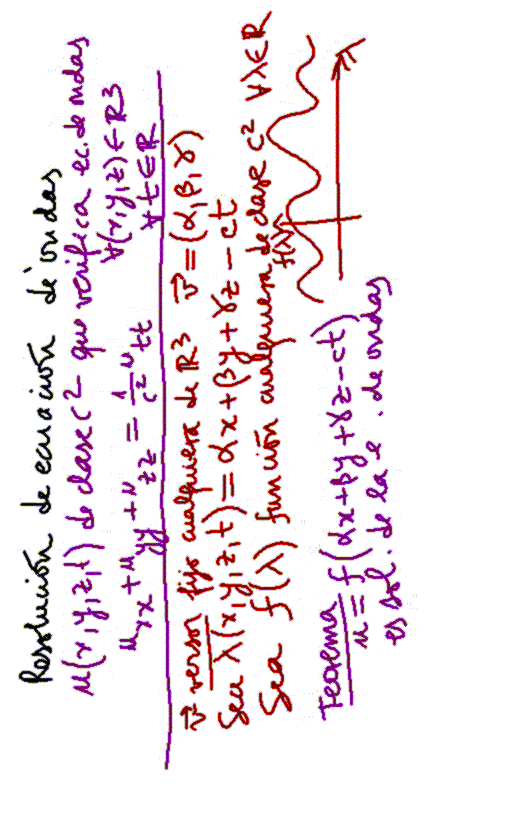 Resolución de ecuación de ondas
u(x,y,z,t) de clase C² que verifica ec. de ondas
u_xx + u_yy + u_zz = 1/c² u_tt ∀(x,y,z)∈R³
∀t∈R
v⃗ versor fijo cualquiera de R³ v⃗=(α,β,γ)
Sea λ(x,y,z,t)=αx+βy+γz-ct
Sea f(λ) función cualquiera de clase C² ∀λ∈R
f(λ)
Teorema
u=f(αx+βy+γz-ct)
es sol. de la e. de ondas